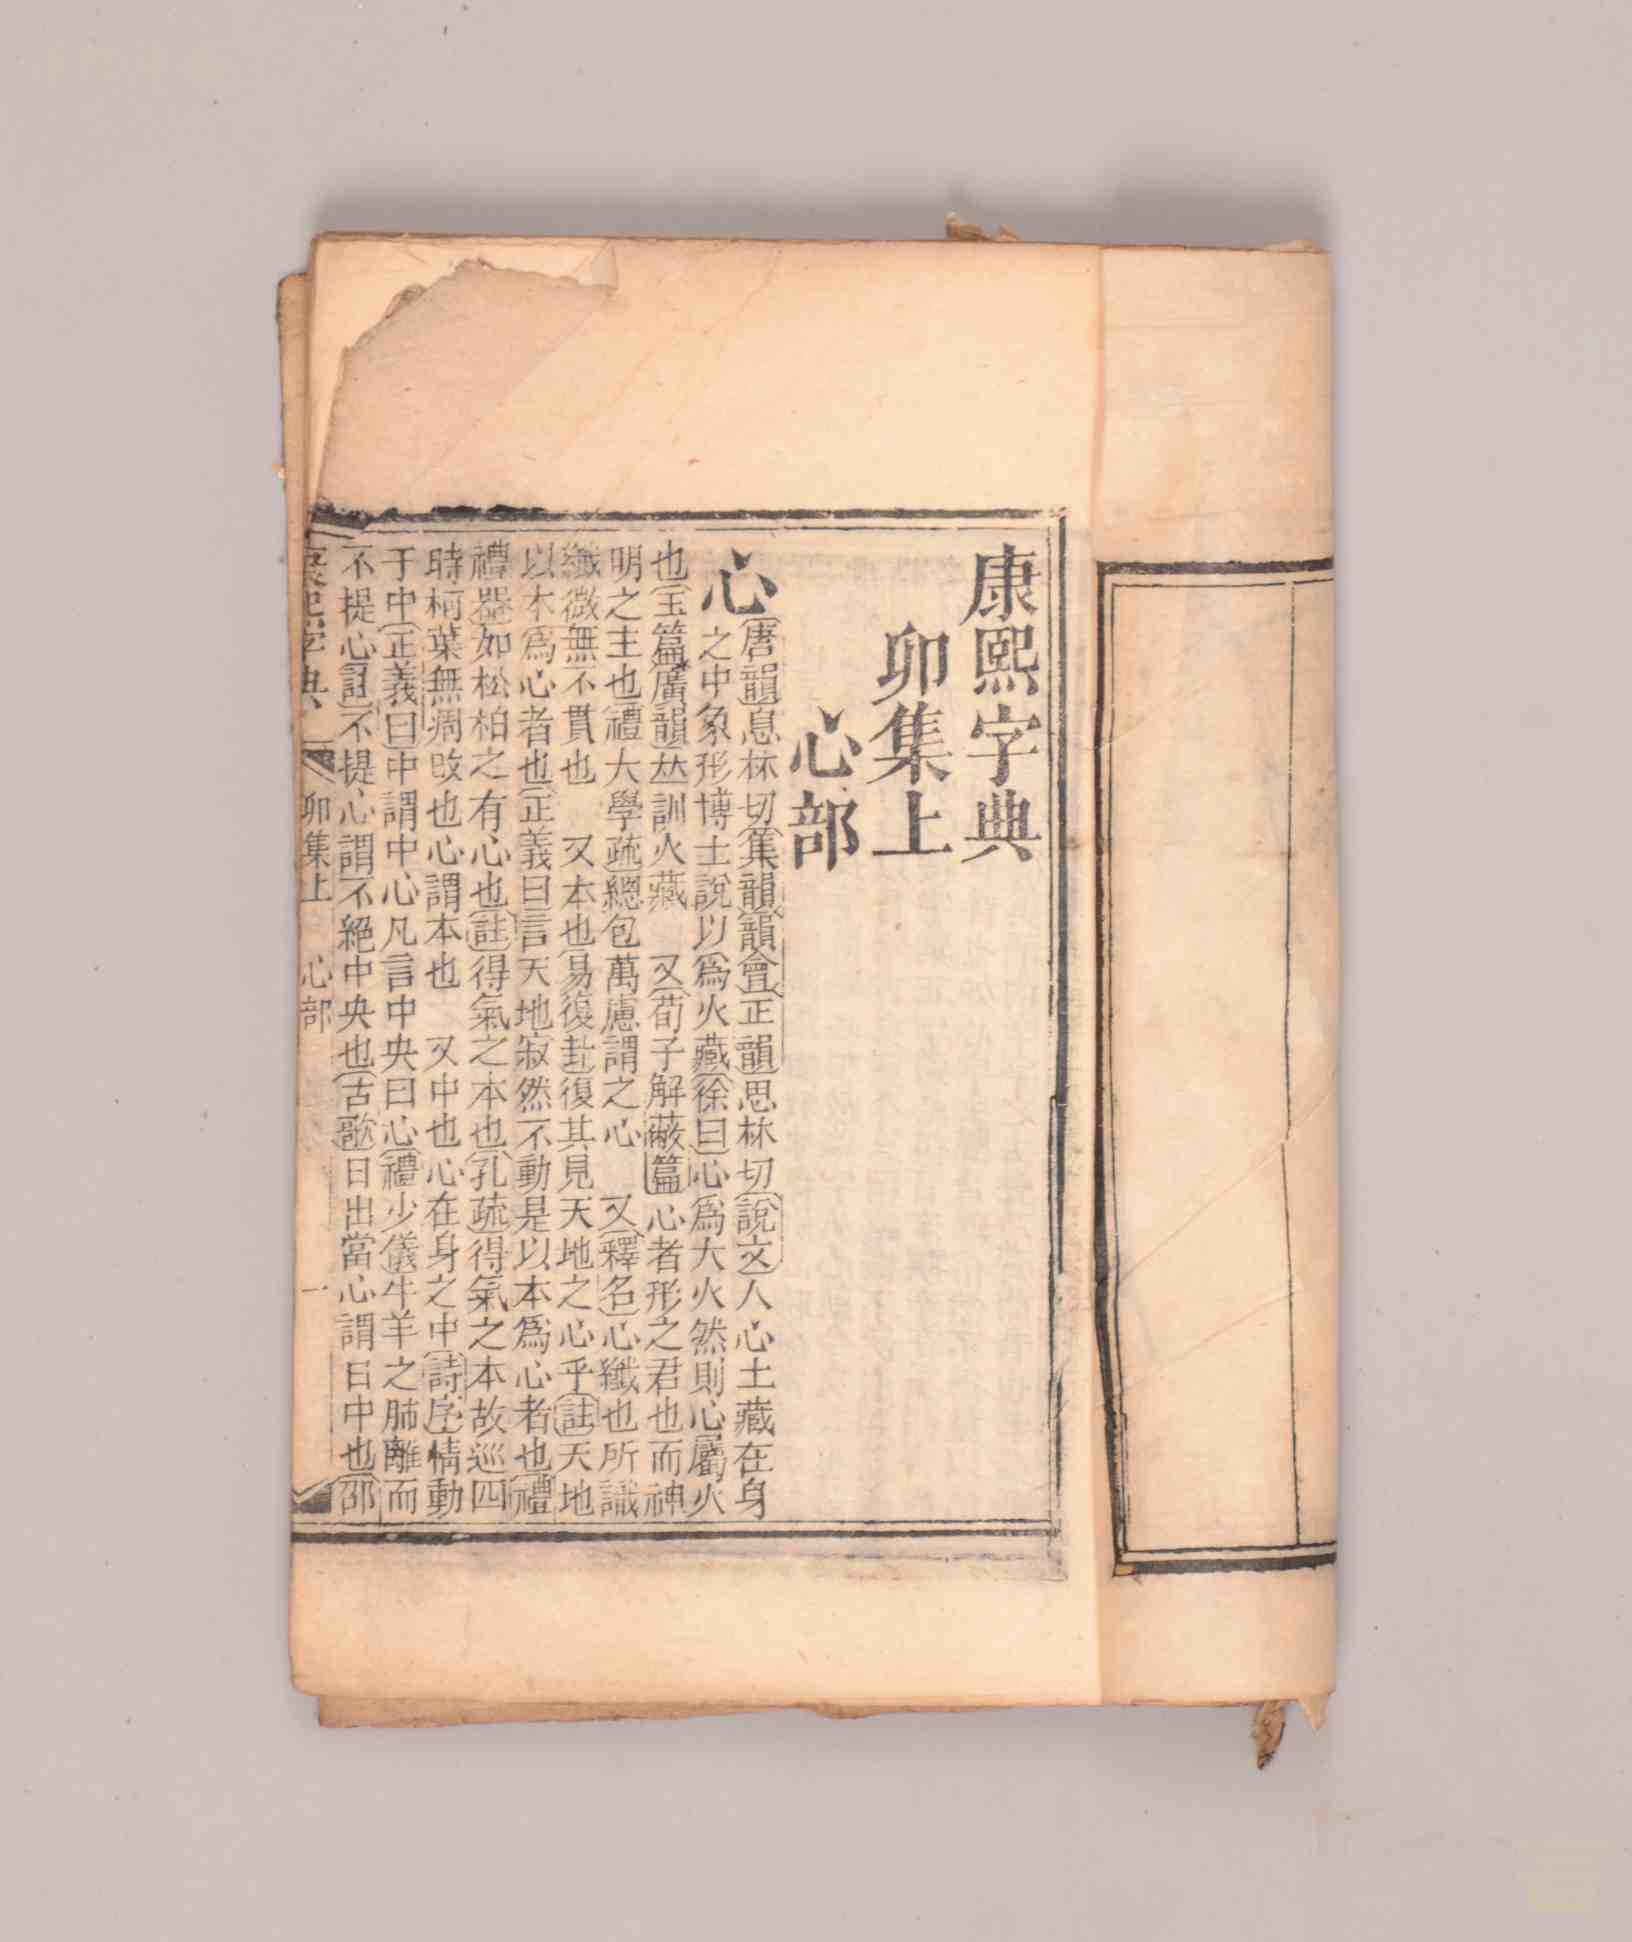 康熙字典
卯集上
心部
心
唐韻息林切集韻韻會正韻思林切說文人心土藏在身
之中象形博士說以爲火藏徐曰心爲大火然則心屬火
也玉篇廣韻𠀤訓火藏　又荀子解蔽篇心者形之君也而神
明之主也禮大學疏總包萬慮謂之心　又釋名心纖也所識
纖微無不貫也　又本也易復卦復其見天地之心乎註天地
以本爲心者也正義曰言天地寂然不動是以本爲心者也禮
禮器如松柏之有心也註得氣之本也孔疏得氣之本故巡四
時柯葉無凋改也心謂本也　又中也心在身之中詩序情動
于中正義曰中謂中心凡言中央曰心禮少儀牛羊之肺離而
不提心註不提心謂不絕中央也古歌日出當心謂日中也邵
康熙字典　卯集上　心部　一